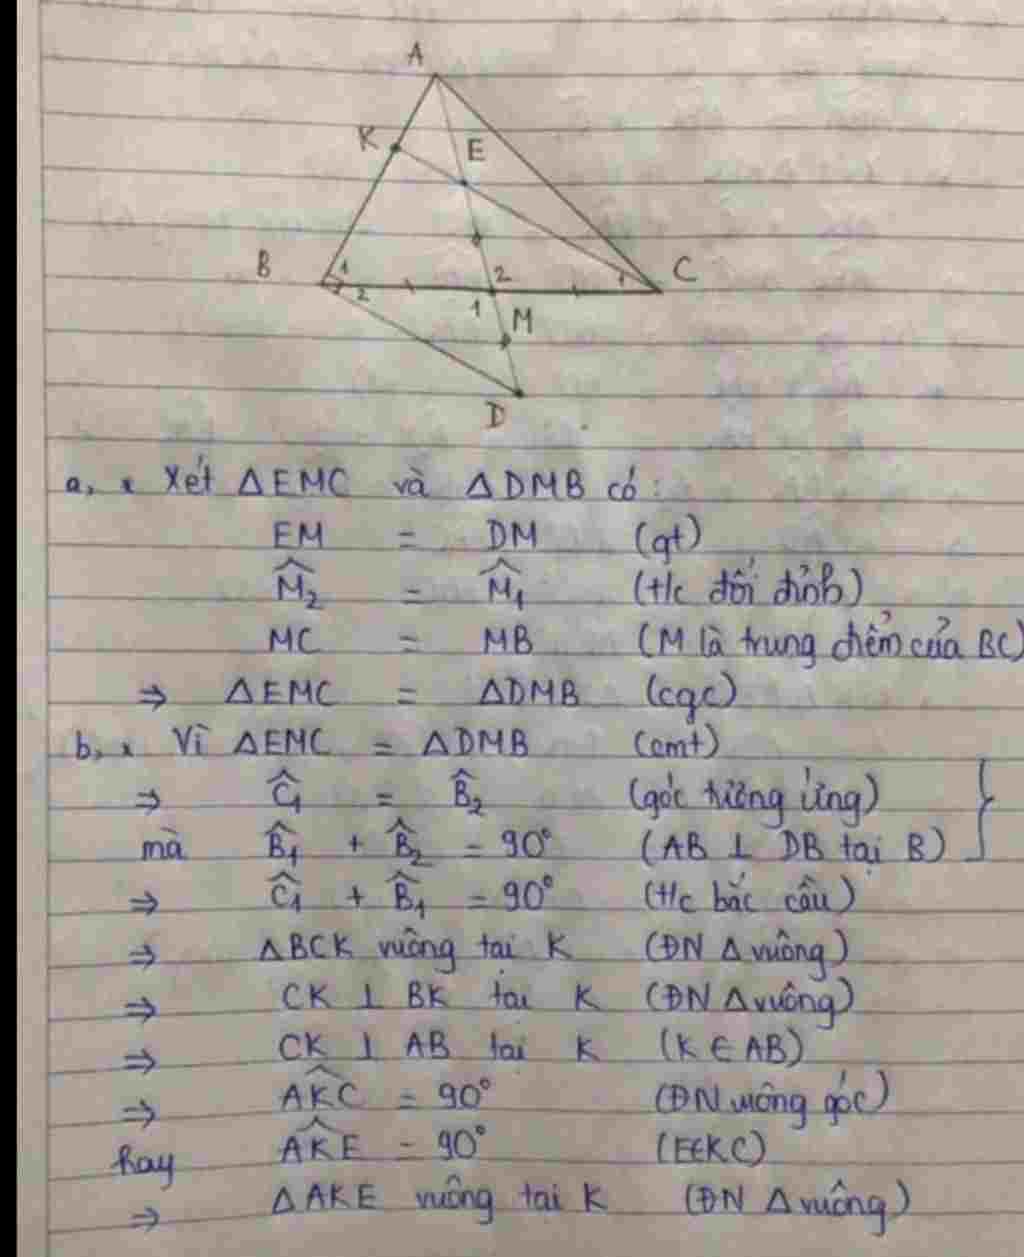 A
K
E
B
1
2
2
1
1
C
M
D
a, × Xét ΔEMC và ΔDMB có:
EM = DM (gt)
M̂₂ = M̂₁ (t/c đối đỉnh)
MC = MB (M là trung điểm của BC)
⇒ ΔEMC = ΔDMB (cgc)
b, × Vì ΔEMC = ΔDMB (cmt)
⇒ Ĉ₁ = B̂₂ (góc tương ứng)
mà B̂₁ + B̂₂ = 90° (AB ⊥ DB tại B)
⇒ Ĉ₁ + B̂₁ = 90° (t/c bắc cầu)
⇒ ΔBCK vuông tại K (ĐN Δ vuông)
⇒ CK ⊥ BK tại K (ĐN Δ vuông)
⇒ CK ⊥ AB tại K (K ∈ AB)
⇒ AKC = 90° (ĐN vuông góc)
hay AKE = 90° (E∈KC)
⇒ ΔAKE vuông tại K (ĐN Δ vuông)